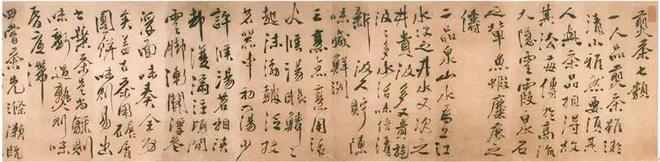 煎茶七類
一人品煎茶雖微
清小雅然要須其
人與茶品相得故
其法每傳於高流
大隱雲霞泉石
之輩魚蝦麋鹿之
儔
二品泉山水為上江
水次之井水又次之
井貴汲多又貴旋
汲汲多水活味倍清
新汲久貯陳
味減鮮冽
三烹點烹用活
火候湯眼鱗鱗
起沫浡鼓泛投
茗器中初入湯少
許候湯茗相浹
卻復滿注頃間
雲腳漸開浮花
浮面味奏全功
矣蓋古茶用碾屑
團餅味則易出
今葉茶是尚驟則
味虧過熟則味
昏底滯
四嘗茶先滌漱既